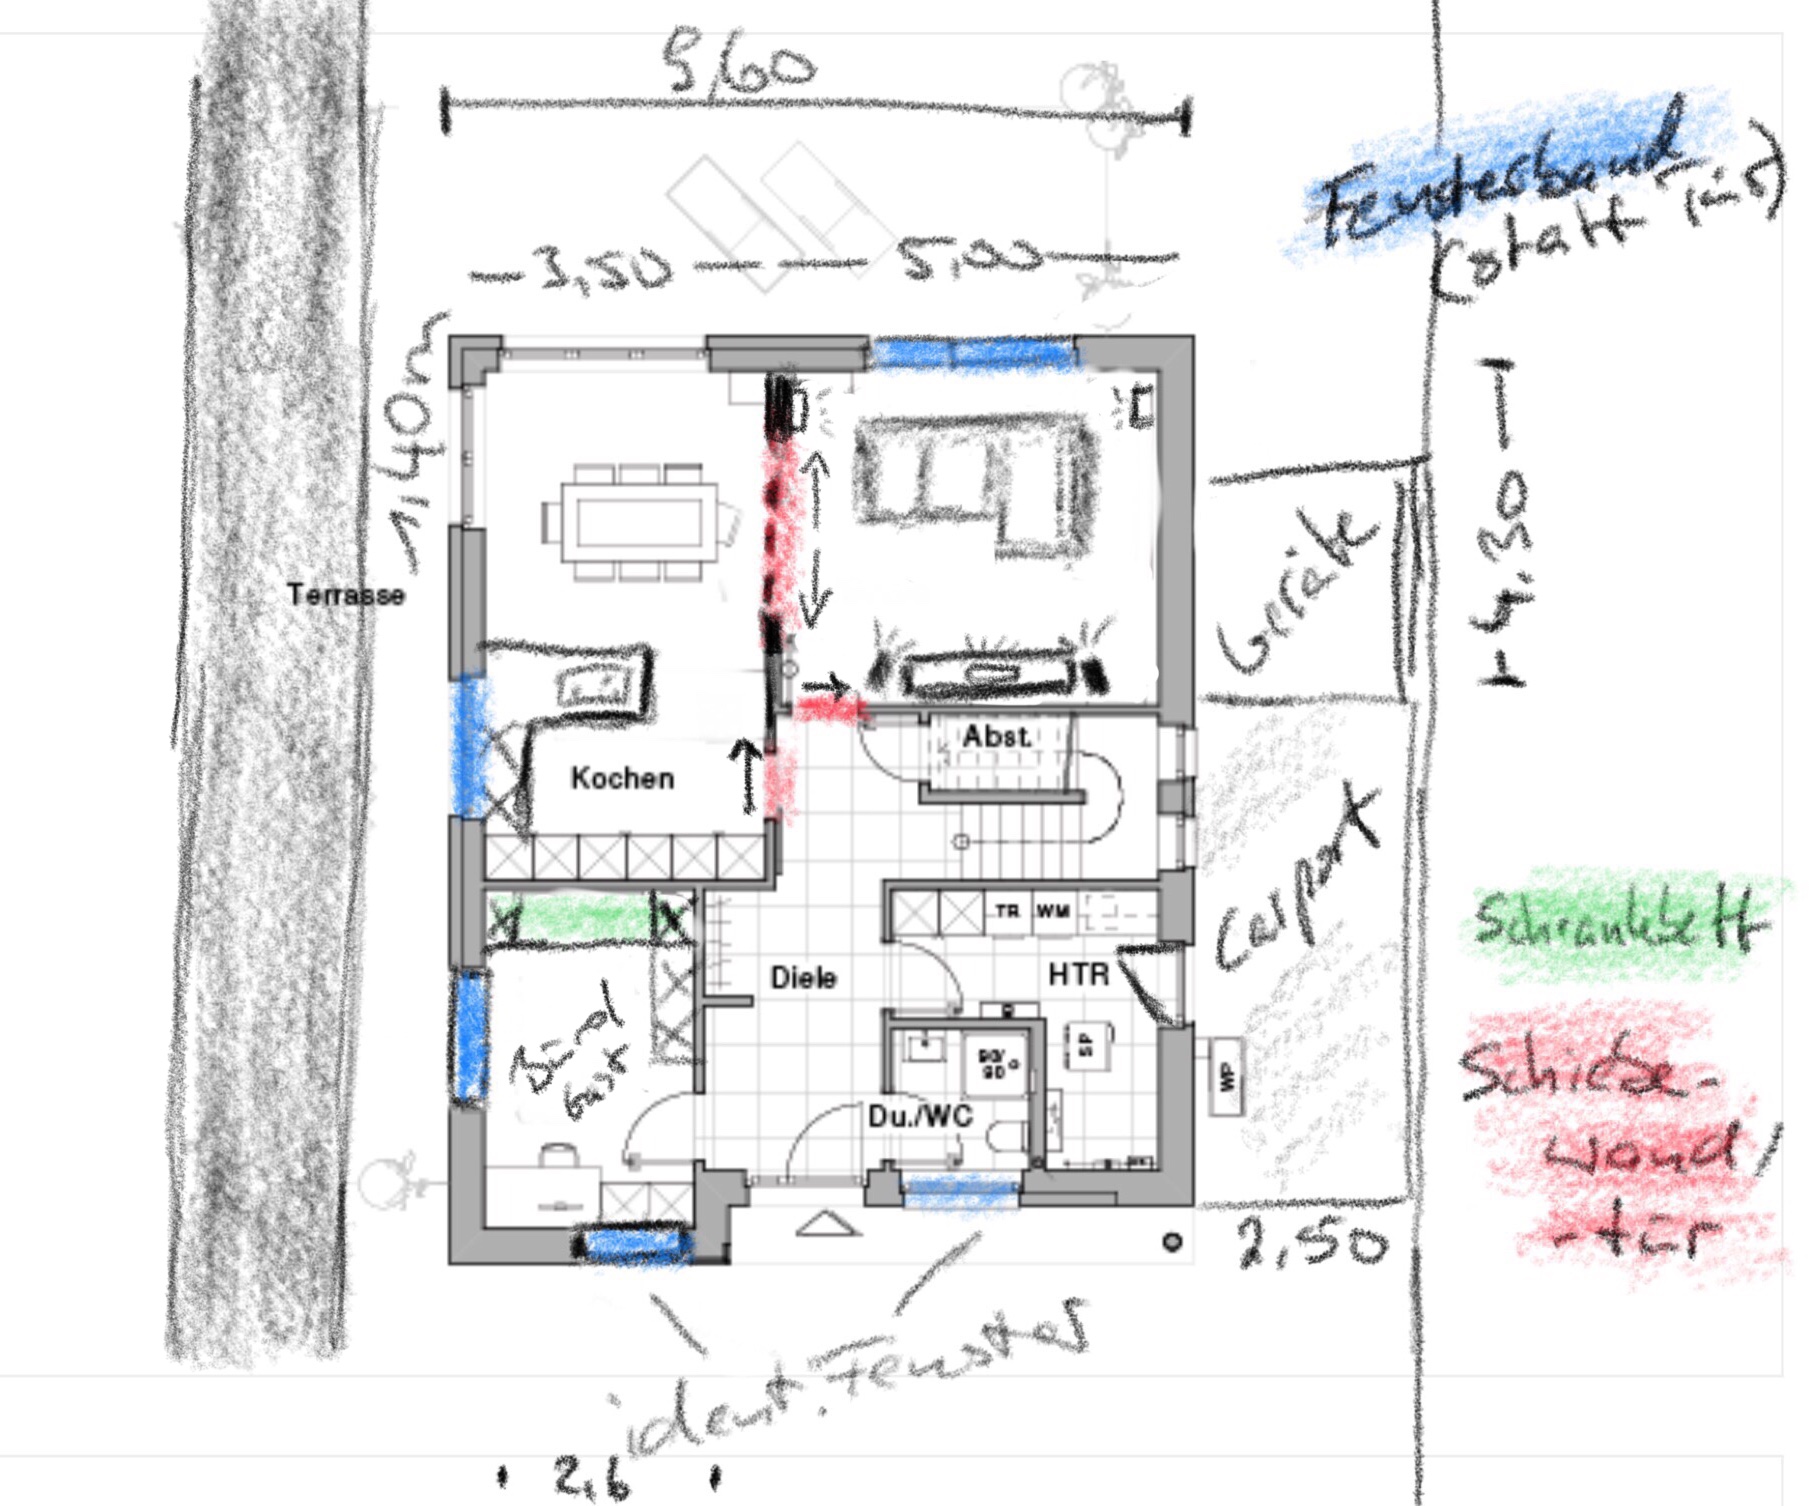 9,60
Fensterband
(statt Tür)
3,50
5,00
1,40m
4.30
Geräte
Terrasse
Abst.
Kochen
Carport
TR
WM
Schrankbett
Diele
HTR
Büro/
Gast
SP
90/
90
WP
Schiebe-
wand/
-tür
Du./WC
2,50
ident. Fenster
2,6